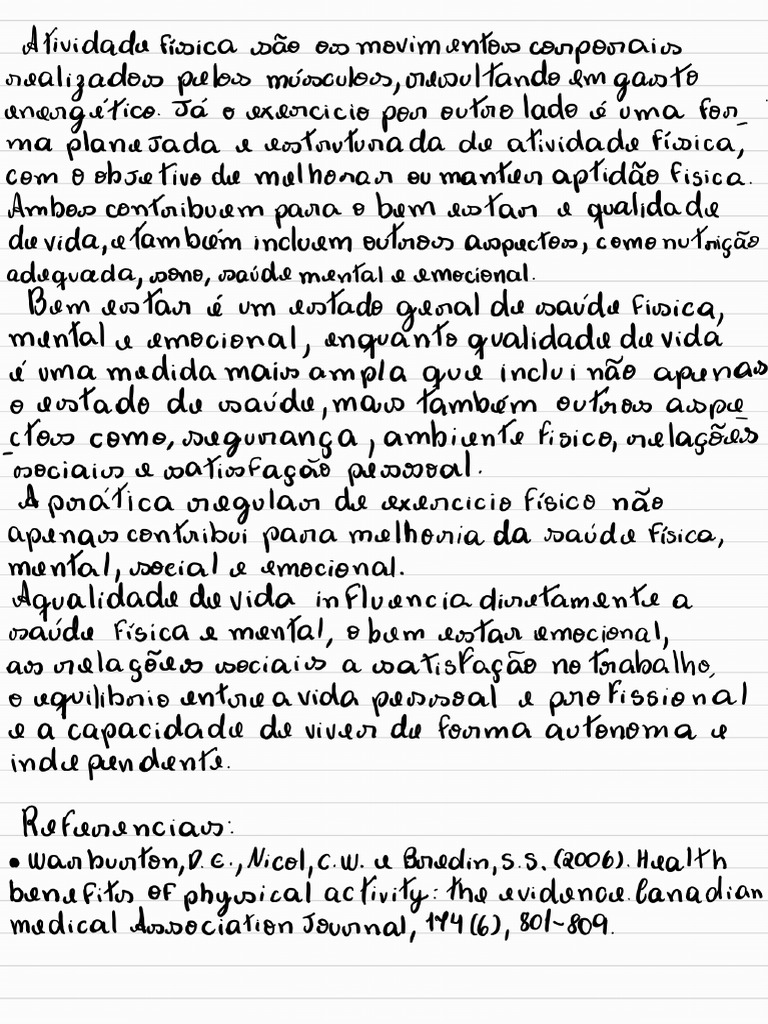 Atividade física são os movimentos corporais
realizados pelos músculos, resultando em gasto
energético. Já o exercicio por outro lado é uma for_
ma planejada e estruturada de atividade física,
com o objetivo de melhorar ou manter aptidão fisica.
Ambos contribuem para o bem estar e qualidade
de vida, e também incluem outros aspectos, como nutrição
adequada, sono, saúde mental e emocional.
Bem estar é um estado geral de saúde fisica,
mental e emocional, enquanto qualidade de vida
é uma medida mais ampla que inclui não apenas
o estado de saúde, mas também outros aspe_
_ctos como, segurança, ambiente fisico, relações
sociais e satisfação pessoal.
A prática regular de exercicio físico não
apenas contribui para melhoria da saúde física,
mental, social e emocional.
A qualidade de vida influencia diretamente a
saúde física e mental, o bem estar emocional,
as relações sociais a satisfação no trabalho,
o equilibrio entre a vida pessoal e profissional
e a capacidade de viver de forma autonoma e
independente.
Referencias:
• Warburton, D.E., Nicol, C.W. e Bredin, S.S. (2006). Health
benefits of physical activity: the evidence. Canadian
medical Association Journal, 174 (6), 801-809.